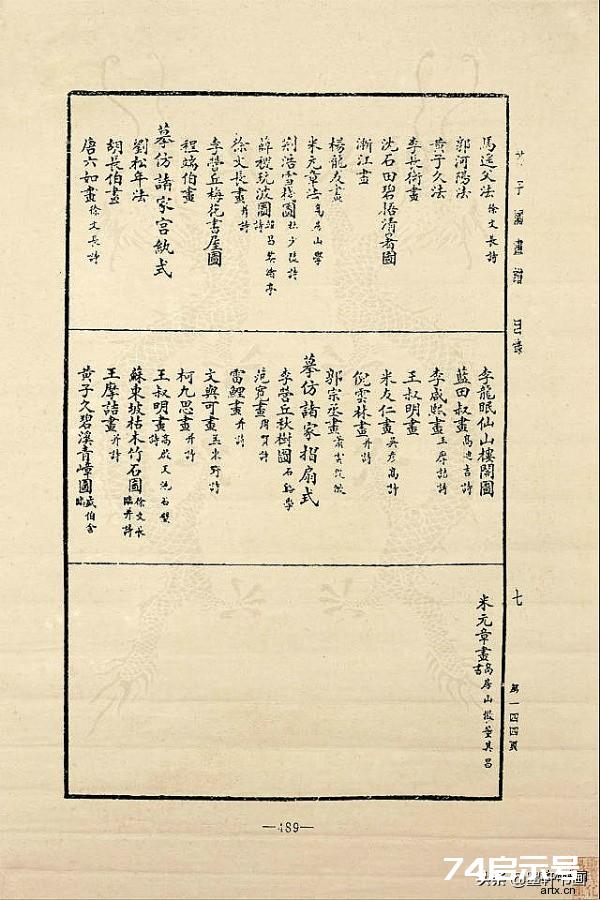 芥子園畫譜 目錄
七
第一四四頁
馬遠父法 徐文長詩
郭河陽法
黃子久法
李長衡畫
沈石田碧梧清暑圖
浙江畫
楊龍友畫
米元章法
荊浩雪棧圖 杜少陵詩
薛稷玩波圖
徐文長畫 并詩
李營丘梅花書屋圖
程端伯畫
摹仿諸家宮紈式
劉松年法
胡長伯畫
唐六如畫 徐文長詩
李龍眠仙山樓閣圖
藍田叔畫 高迪吉詩
李咸熙畫 王摩詰詩
王叔明畫
米友仁畫 吳彥高詩
倪雲林畫 并詩
郭宗丞畫
摹仿諸家摺扇式
李營丘秋樹圖
范寬畫 周賀詩
雷鯉畫 并詩
文與可畫 孟東野詩
柯九思畫 并詩
王叔明畫
蘇東坡枯木竹石圖 徐文長臨并詩
王摩詰畫 并詩
黃子久碧溪青嶂圖 盛伯含臨
米元章畫 高房山擬 董其昌書
—489—
74启示号
artx.cn